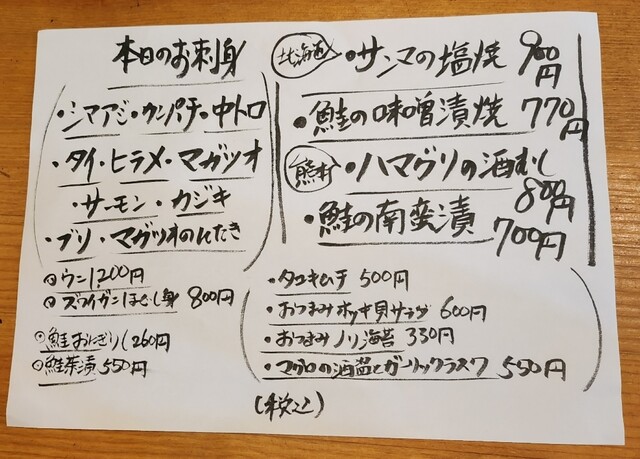 本日のお刺身
・シマアジ・カンパチ・中トロ
・タイ・ヒラメ・マガツオ
・サーモン・カジキ
・ブリ・マガツオのたたき
ウニ1200円
ズワイガニほぐし身 800円
鮭おにぎり 260円
鮭茶漬 550円
北海道 ・サンマの塩焼 900円
・鮭の味噌漬焼 770円
熊本 ・ハマグリの酒むし 800円
・鮭の南蛮漬 700円
・タコキムチ 500円
・おつまみホッキ貝サラダ 600円
・おつまみノリ海苔 330円
・マグロの酒盗とガーリックラスク 550円
(税込)